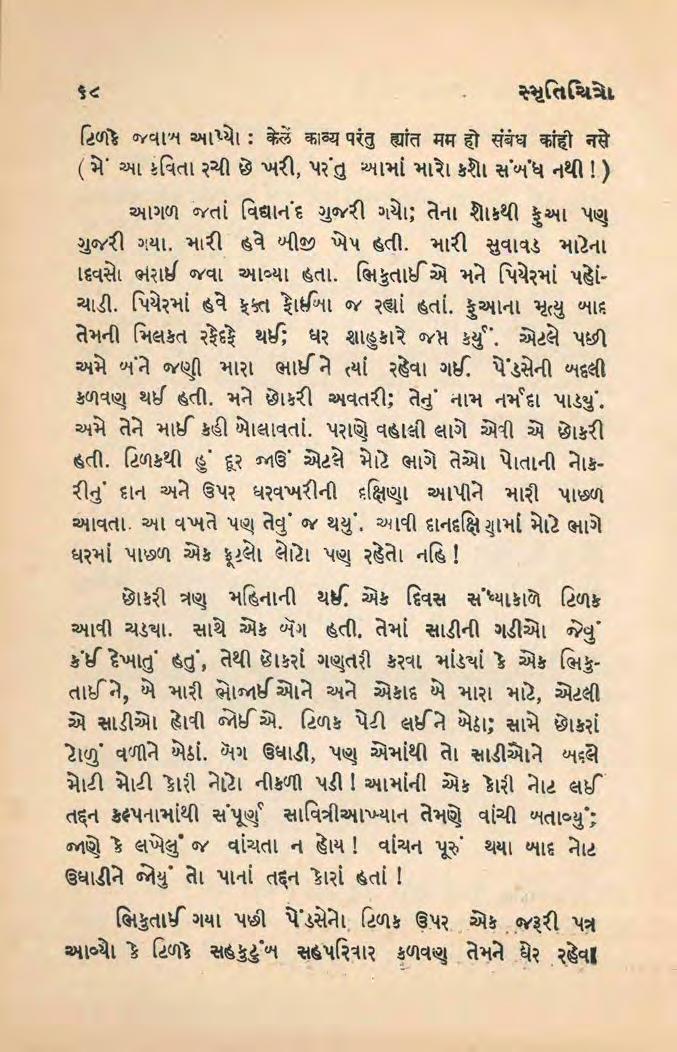 ૬૮ સ્મૃતિચિત્રો
ટિળકે જવાબ આપ્યો : केलें काव्य परंतु ह्यांत मम हो संबंध कांही नसे
( મેં આ કવિતા રચી છે ખરી, પરંતુ આમાં મારો કશો સંબંધ નથી ! )
આગળ જતાં વિદ્યાનંદ ગુજરી ગયો; તેના શોકથી ફૂઆ પણ
ગુજરી ગયા. મારી હવે બીજી ખેપ હતી. મારી સુવાવડ માટેના
દિવસો ભરાઈ જવા આવ્યા હતા. ભિકુતાઈએ મને પિયેરમાં પહોં-
ચાડી. પિયેરમાં હવે ફક્ત ફોઈબા જ રહ્યાં હતાં. ફૂઆના મૃત્યુ બાદ
તેમની મિલકત રફેદફે થઈ; ઘર શાહુકારે જપ્ત કર્યું. એટલે પછી
અમે બંને જણી મારા ભાઈને ત્યાં રહેવા ગઈ. પેંડસેની બદલી
કળવણ થઈ હતી. મને છોકરી અવતરી; તેનું નામ નર્મદા પાડયું.
અમે તેને માઈ કહી બોલાવતાં. પરાણે વહાલી લાગે એવી એ છોકરી
હતી. ટિળકથી હું દૂર જાઉં એટલે મોટે ભાગે તેઓ પોતાની નોક-
રીનું દાન અને ઉપર ઘરવખરીની દક્ષિણા આપીને મારી પાછળ
આવતા. આ વખતે પણ તેવું જ થયું. આવી દાનદક્ષિણામાં મોટે ભાગે
ઘરમાં પાછળ એક ફૂટલો લોટો પણ રહેતો નહિ !
છોકરી ત્રણ મહિનાની થઈ. એક દિવસ સંધ્યાકાળે ટિળક
આવી ચડયા. સાથે એક બૅગ હતી. તેમાં સાડીની ગડીઓ જેવું
કંઈ દેખાતું હતું, તેથી છોકરાં ગણતરી કરવા માંડયાં કે એક ભિકુ-
તાઈને, બે મારી ભોજાઈઓને અને એકાદ બે મારા માટે, એટલી
એ સાડીઓ હોવી જોઈએ. ટિળક પેટી લઈને બેઠા; સામે છોકરાં
ટોળું વળીને બેઠાં. બૅગ ઉઘાડી, પણ એમાંથી તો સાડીઓને બદલે
મોટી મોટી કોરી નોટો નીકળી પડી ! આમાંની એક કોરી નોટ લઈ
તદ્દન કલ્પનામાંથી સંપૂર્ણ સાવિત્રીઆખ્યાન તેમણે વાંચી બતાવ્યું;
જાણે કે લખેલું જ વાંચતા ન હોય ! વાંચન પૂરું થયા બાદ નોટ
ઉઘાડીને જોયું તો પાનાં તદ્દન કોરાં હતાં !
ભિકુતાઈ ગયા પછી પેંડસેનો ટિળક ઉપર એક જરૂરી પત્ર
આવ્યો કે ટિળકે સહકુટુંબ સહપરિવાર કળવણ તેમને ઘેર રહેવા